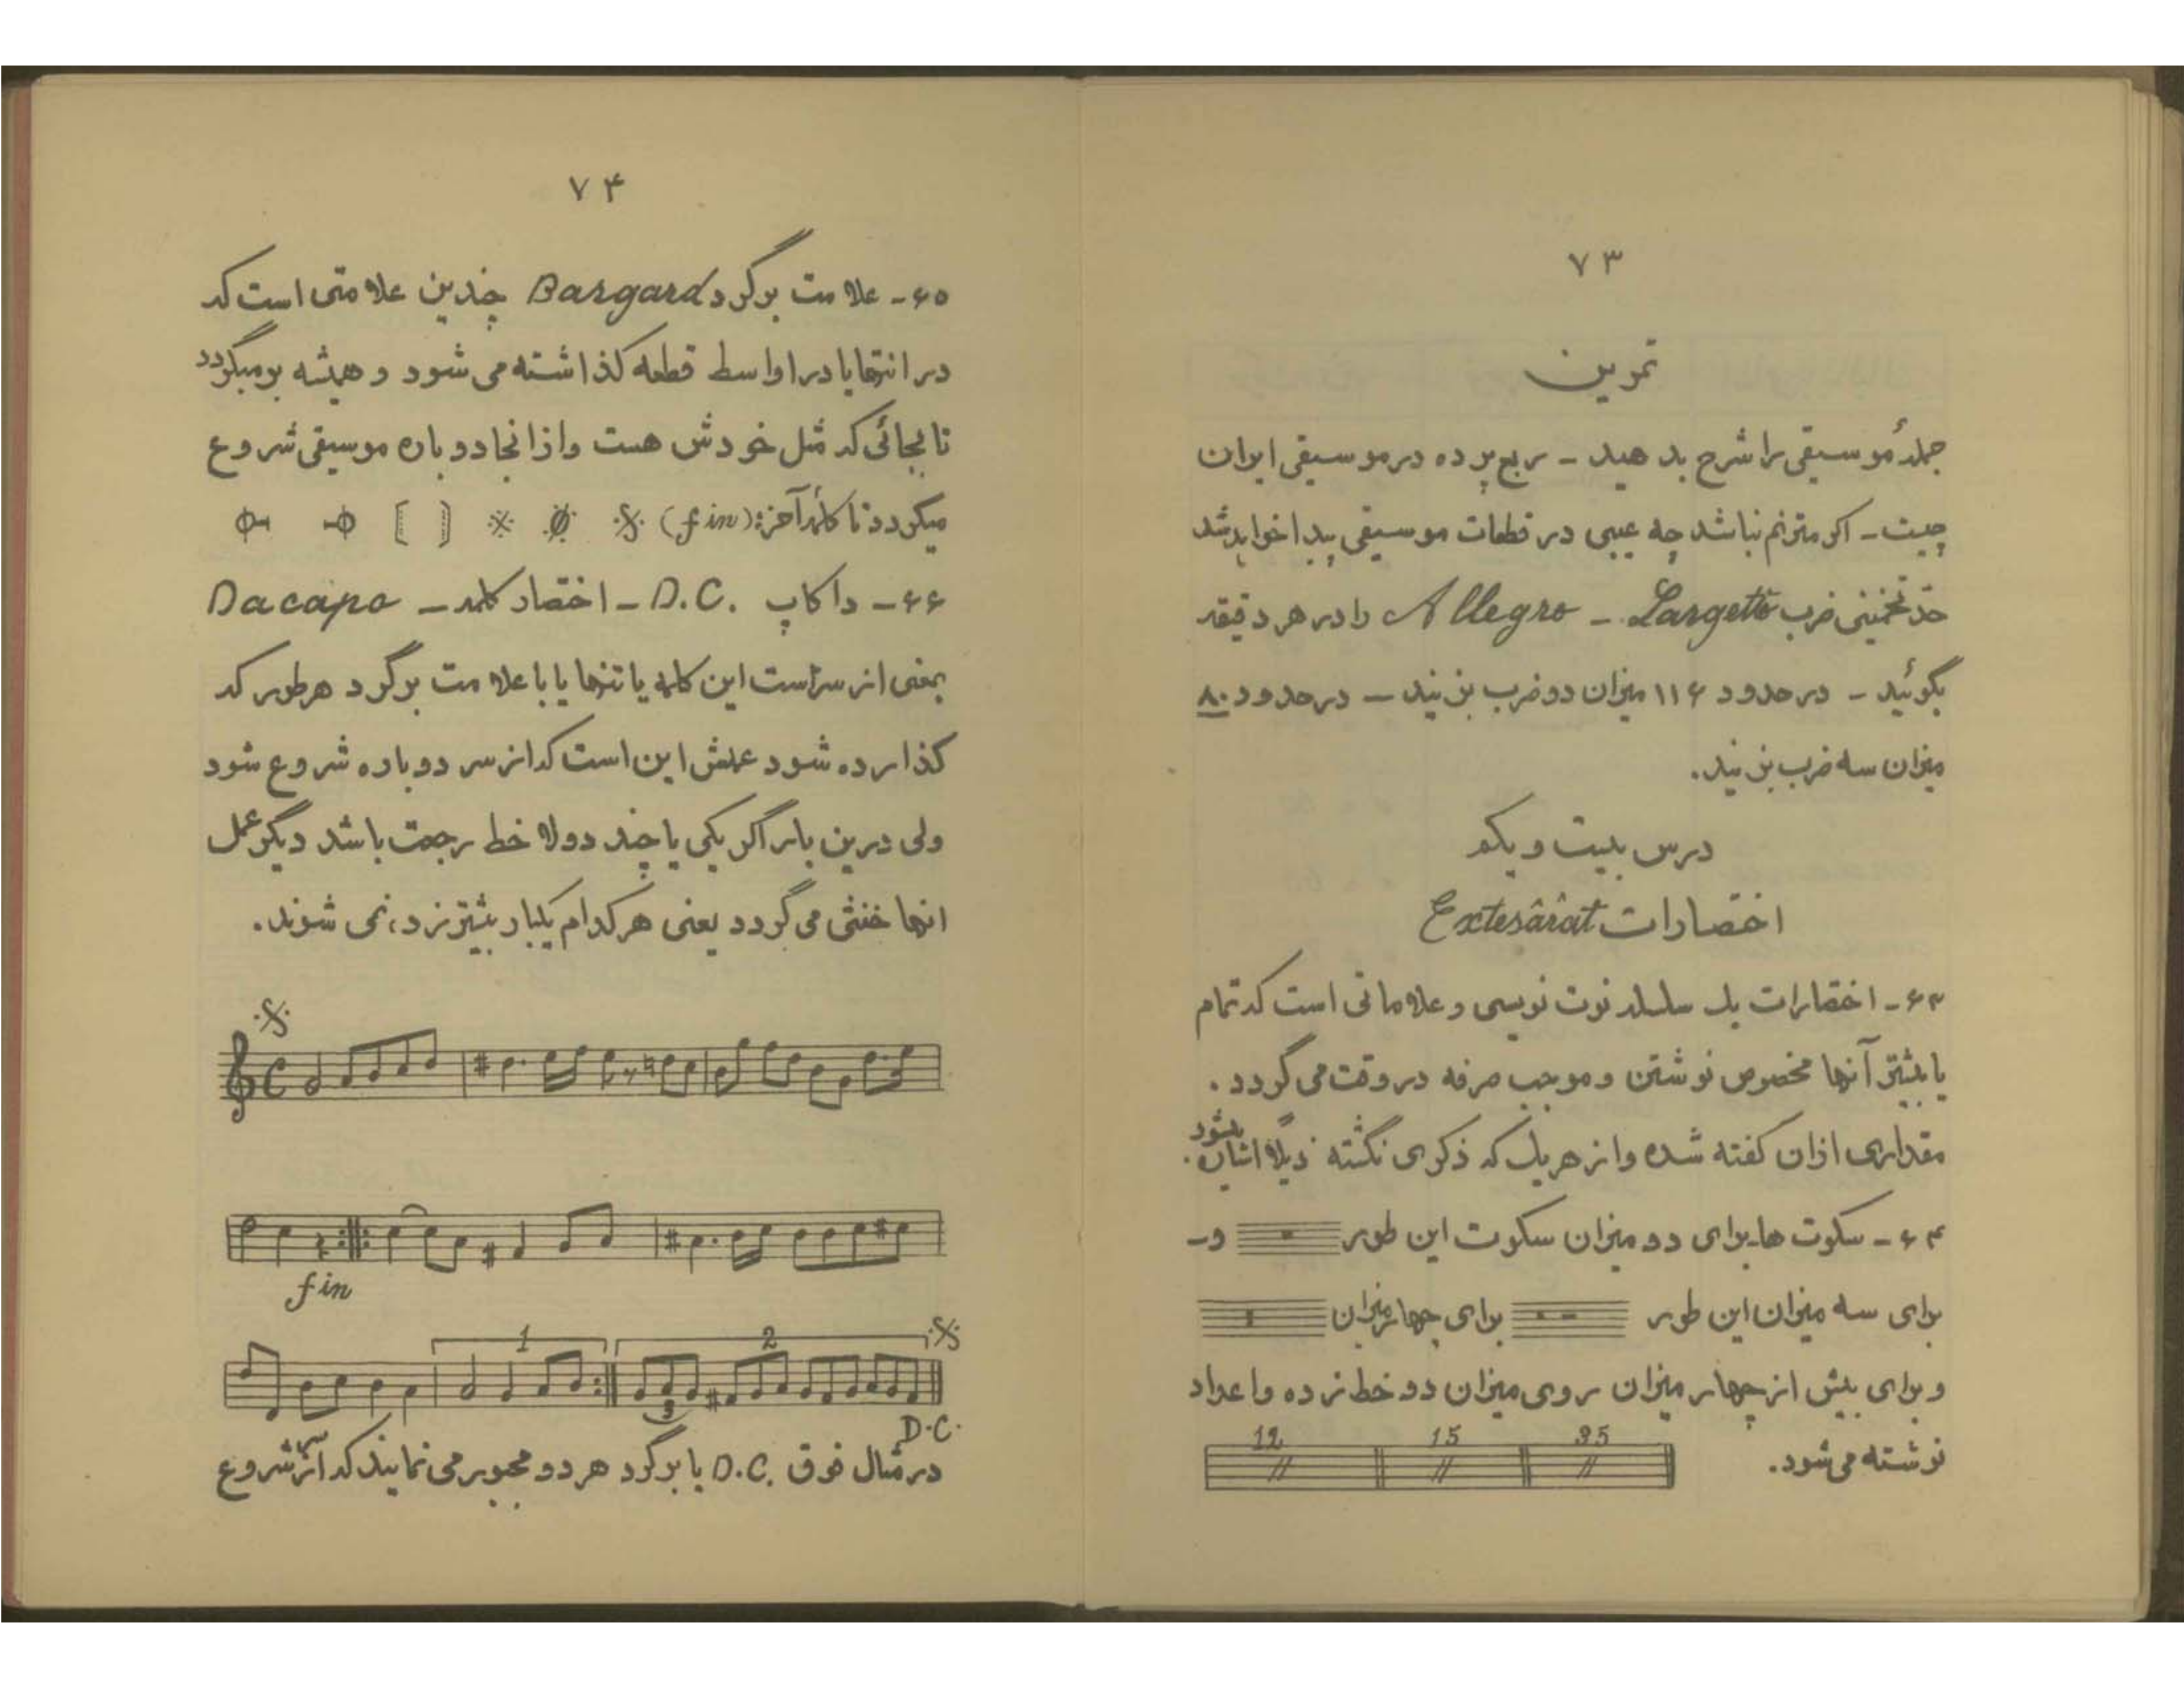 ۷۳
تمرین
جملهٔ موسیقی را شرح بدهید – ربع پرده در موسیقی ایران
چیست – اگر مترنم نباشد چه عیبی در قطعات موسیقی پیدا خواهد شد
حدّ تخمینی ضرب Allegro – Largetto را در هر دقیقه
بگوئید – در حدود ۱۱۶ میزان دو ضرب بزنید – در حدود ۸۰
میزان سه ضرب بزنید.
درس بیست و یکم
اختصارات Extesârât
۶۳ – اختصارات یک سلسله نوت نویسی و علاماتی است که تمام
یا بیشتر آنها مخصوص نوشتن و موجب صرفه در وقت می گردد.
مقداری ازان گفته شده و از هر یک که ذکری نگشته ذیلاً اشاره میشود.
۶۴ – سکوت ها برای دو میزان سکوت این طور و –
برای سه میزان این طور برای چهار میزان
و برای بیش از چهار میزان روی میزان دو خط زده و اعداد
نوشته می شود.
12 15 35
۷۴
۶۵ – علامت برگرد Bargard چندین علامتی است که
در انتها یا در اواسط قطعه گذاشته می شود و همیشه برمیگردد
تا بجائی که مثل خودش هست و ازانجا دوباره موسیقی شروع
میگردد تا کلمهٔ آخر: (fin)
۶۶ – داکاپ D.C. – اختصار کلمه – Dacapo
بمعنی از سر است این کلمه یا تنها یا با علامت برگرد هر طور که
گذارده شود عملش این است که از سر دوباره شروع شود
ولی درین بار اگر یکی یا چند دولا خط رجعت باشد دیگر عمل
انها خنثی می گردد یعنی هر کدام یکبار بیشتر زده نمی شوند.
fin
1 2
3
D.C.
در مثال فوق D.C. یا برگرد هر دو مجبور می نمایند که از سر شروع